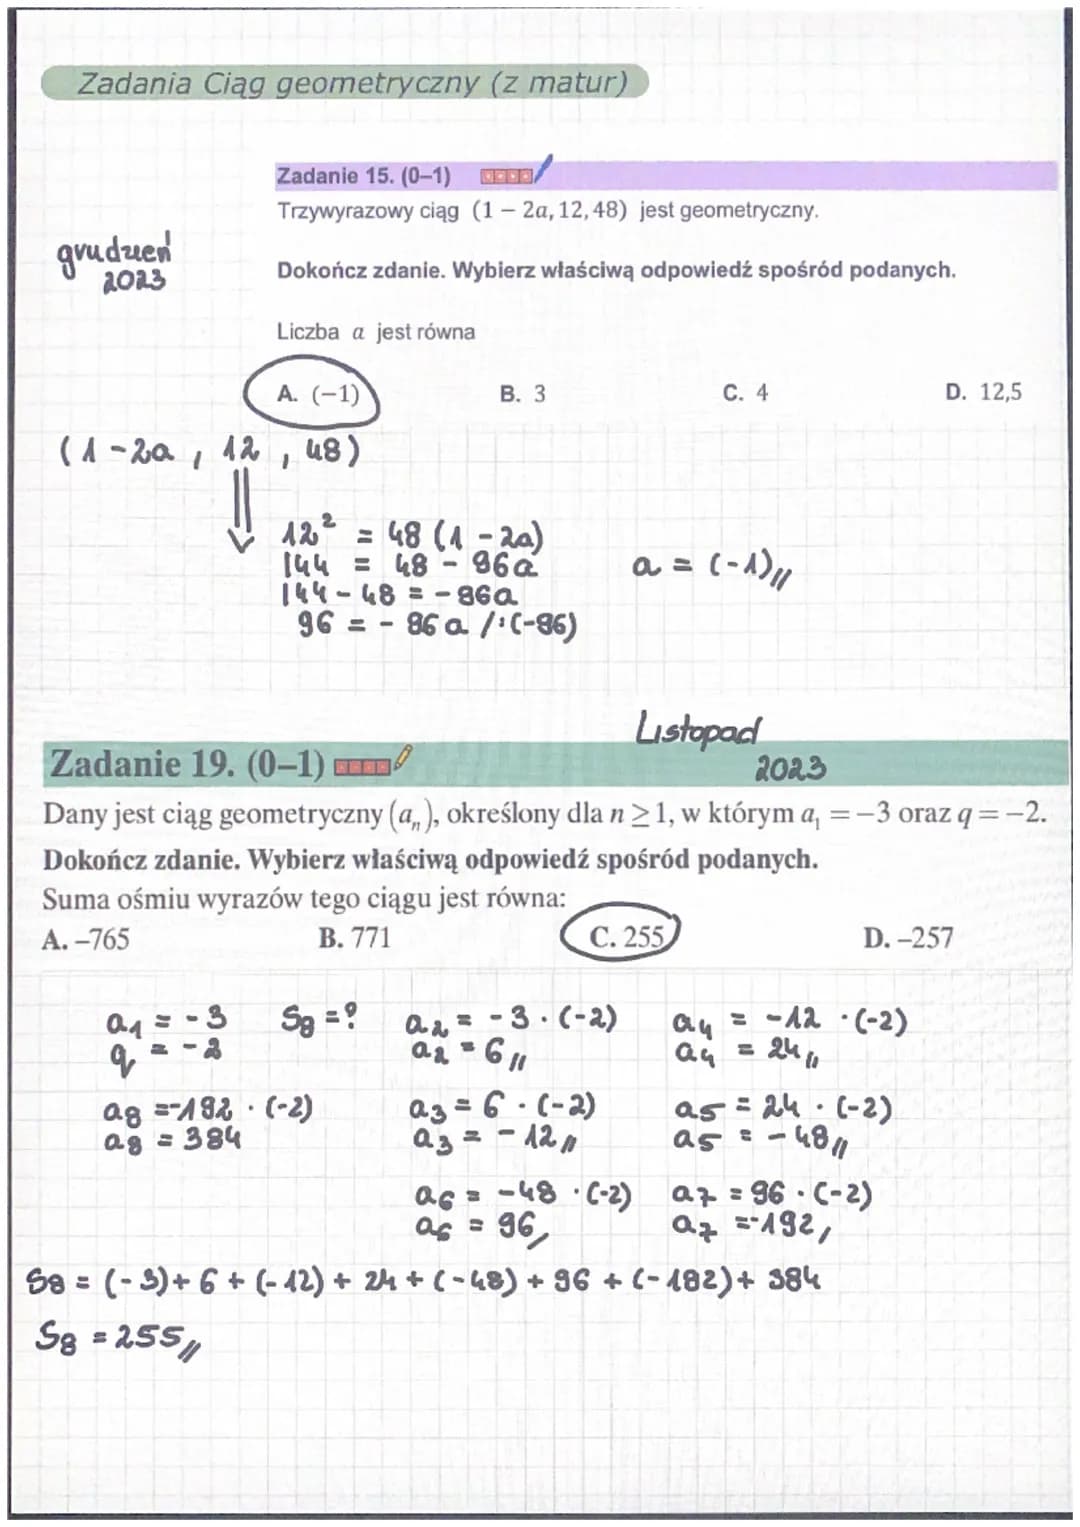 Zadania Ciąg geometryczny (z matur)
Zadanie 15. (0–1)
Trzywyrazowy ciąg (1 – 2a, 12, 48) jest geometryczny.
grudzień
2023
Dokończ zdanie. Wybierz właściwą odpowiedź spośród podanych.
Liczba a jest równa
A. (−1) B. 3 C. 4 D. 12,5
(1 - 2a, 12, 48)
12² = 48 (1 - 2a)
144 = 48 - 96a
a = (-1)//
144 - 48 = -96a
96 = - 96a /:(-96)
Listopad
2023
Zadanie 19. (0–1)
Dany jest ciąg geometryczny (aₙ), określony dla n ≥ 1, w którym a₁ = −3 oraz q = −2.
Dokończ zdanie. Wybierz właściwą odpowiedź spośród podanych.
Suma ośmiu wyrazów tego ciągu jest równa:
A. –765 B. 771 C. 255 D. –257
a₁ = -3 S₈ = ? a₂ = -3 · (-2) a₄ = -12 · (-2)
q = -2 a₂ = 6// a₄ = 24//
a₈ = -192 · (-2) a₃ = 6 · (-2) a₅ = 24 · (-2)
a₈ = 384 a₃ = -12// a₅ = -48//
a₆ = -48 · (-2) a₇ = 96 · (-2)
a₆ = 96, a₇ = -192,
S₈ = (-3) + 6 + (-12) + 24 + (-48) + 96 + (-192) + 384
S₈ = 255//